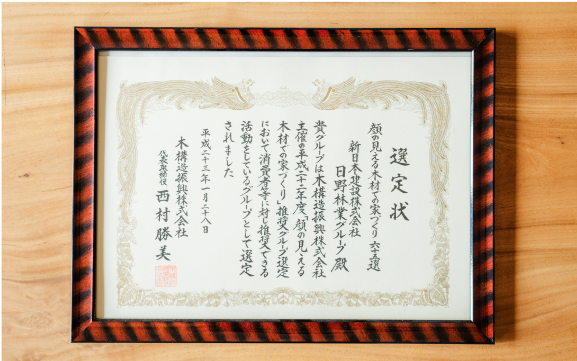 選定状
顔の見える木材での家づくり 六十五選
新日本建設株式会社
日野林業グループ 殿
貴グループは木構造振興株式会社
主催の平成二十二年度、「顔の見える
木材での家づくり」推奨グループ選定
において消費者等に対し推奨できる
活動をしているグループとして選定
されました
平成二十三年一月二十八日
木構造振興株式会社
代表取締役 西村勝美